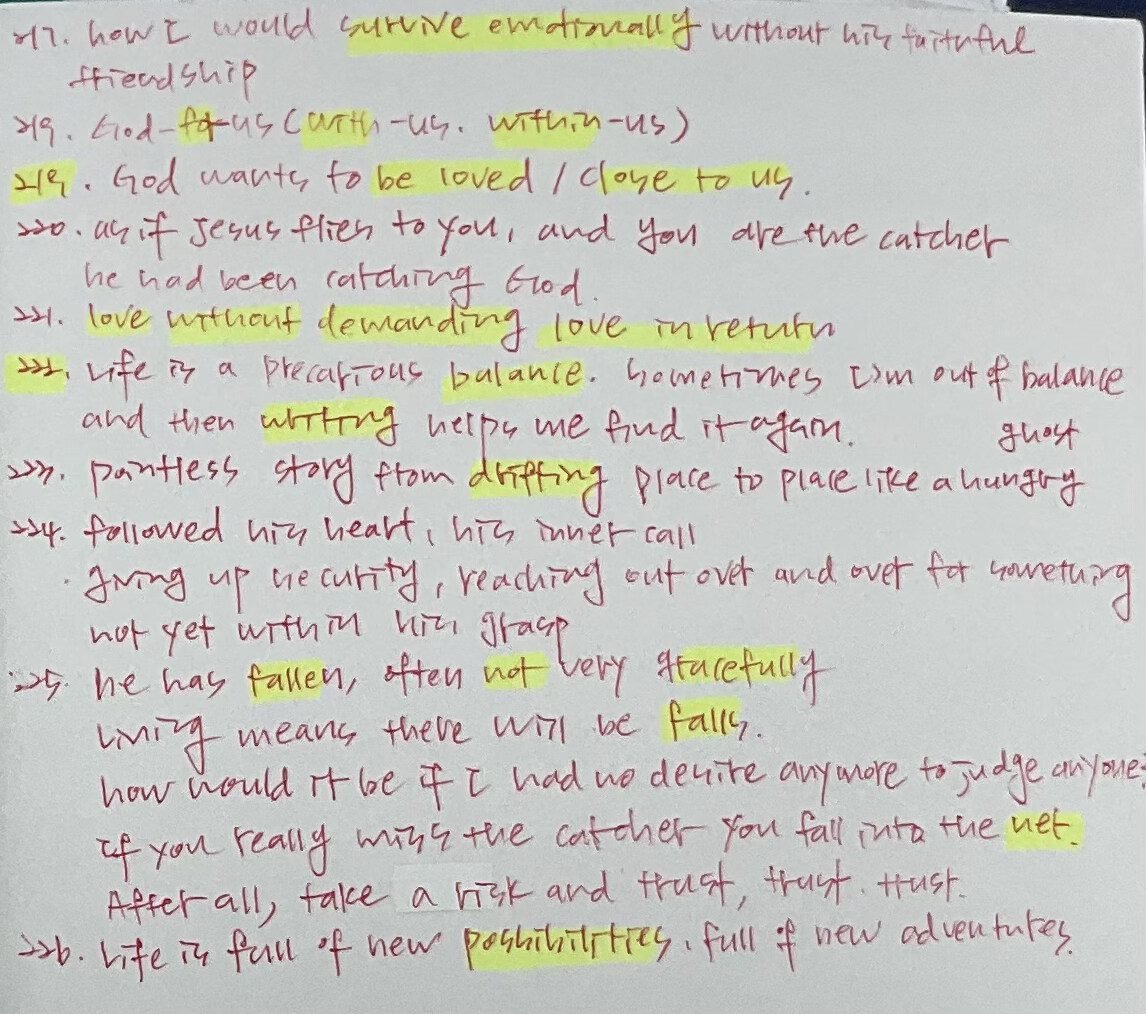 217. how I would survive emotionally without his faithful
friendship
219. God-for-us (with-us. within-us)
219. God wants to be loved / close to us.
220. as if Jesus flies to you, and you are the catcher
he had been catching God.
221. love without demanding love in return
222. Life is a precarious balance. Sometimes I'm out of balance
and then writing helps me find it again.
ghost
223. pointless story from drifting place to place like a hungry
224. followed his heart, his inner call
. giving up security, reaching out over and over for something
not yet within his grasp
225. he has fallen, often not very gracefully
Living means there will be falls.
how would it be if I had no desire anymore to judge anyone.
If you really miss the catcher you fall into the net.
After all, take a risk and trust, trust. trust.
226. Life is full of new possibilities. full of new adventures.